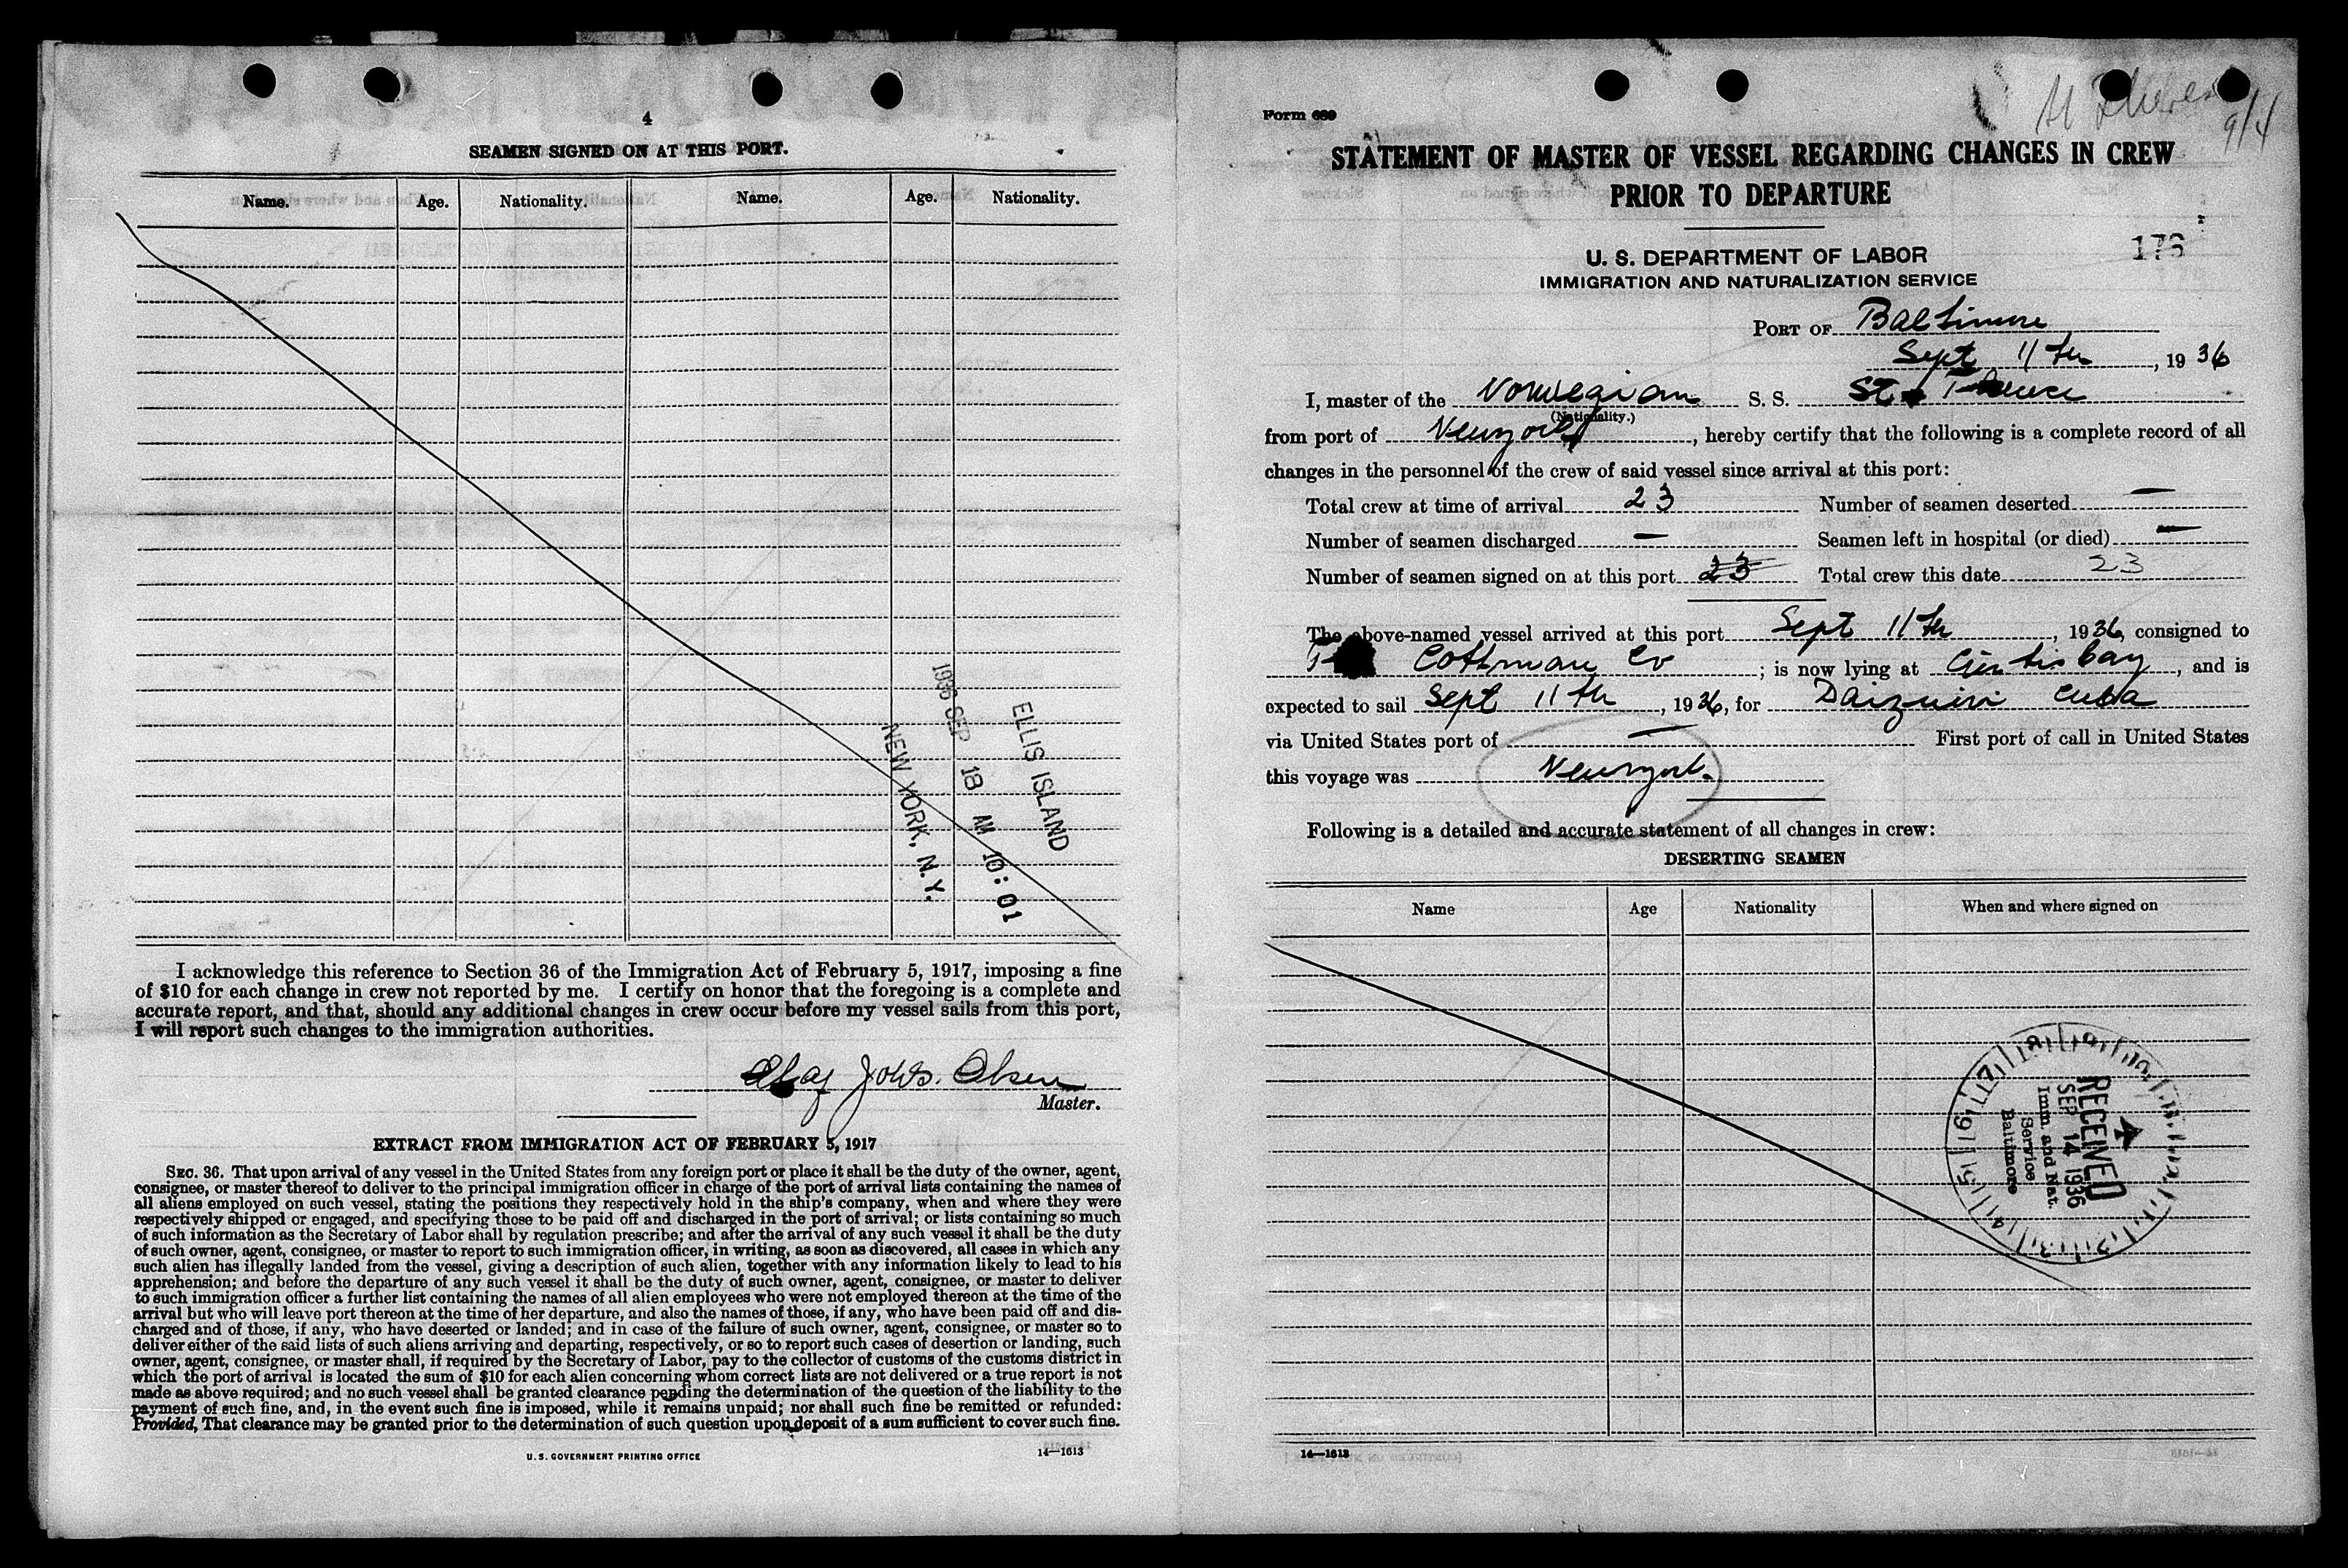 4
SEAMEN SIGNED ON AT THIS PORT.
Name. Age. Nationality. Name. Age. Nationality.
ELLIS ISLAND
1936 SEP 18 AM 10:01
NEW YORK, N.Y.
I acknowledge this reference to Section 36 of the Immigration Act of February 5, 1917, imposing a fine
of $10 for each change in crew not reported by me. I certify on honor that the foregoing is a complete and
accurate report, and that, should any additional changes in crew occur before my vessel sails from this port,
I will report such changes to the immigration authorities.
Olaf Johs. Olsen
Master.
EXTRACT FROM IMMIGRATION ACT OF FEBRUARY 5, 1917
SEC. 36. That upon arrival of any vessel in the United States from any foreign port or place it shall be the duty of the owner, agent,
consignee, or master thereof to deliver to the principal immigration officer in charge of the port of arrival lists containing the names of
all aliens employed on such vessel, stating the positions they respectively hold in the ship's company, when and where they were
respectively shipped or engaged, and specifying those to be paid off and discharged in the port of arrival; or lists containing so much
of such information as the Secretary of Labor shall by regulation prescribe; and after the arrival of any such vessel it shall be the duty
of such owner, agent, consignee, or master to report to such immigration officer, in writing, as soon as discovered, all cases in which any
such alien has illegally landed from the vessel, giving a description of such alien, together with any information likely to lead to his
apprehension; and before the departure of any such vessel it shall be the duty of such owner, agent, consignee, or master to deliver
to such immigration officer a further list containing the names of all alien employees who were not employed thereon at the time of the
arrival but who will leave port thereon at the time of her departure, and also the names of those, if any, who have been paid off and dis-
charged and of those, if any, who have deserted or landed; and in case of the failure of such owner, agent, consignee, or master so to
deliver either of the said lists of such aliens arriving and departing, respectively, or so to report such cases of desertion or landing, such
owner, agent, consignee, or master shall, if required by the Secretary of Labor, pay to the collector of customs of the customs district in
which the port of arrival is located the sum of $10 for each alien concerning whom correct lists are not delivered or a true report is not
made as above required; and no such vessel shall be granted clearance pending the determination of the question of the liability to the
payment of such fine, and, in the event such fine is imposed, while it remains unpaid; nor shall such fine be remitted or refunded:
Provided, That clearance may be granted prior to the determination of such question upon deposit of a sum sufficient to cover such fine.
U. S. GOVERNMENT PRINTING OFFICE 14—1613
9/4
Form 689
STATEMENT OF MASTER OF VESSEL REGARDING CHANGES IN CREW
PRIOR TO DEPARTURE
U. S. DEPARTMENT OF LABOR
IMMIGRATION AND NATURALIZATION SERVICE
176
PORT OF Baltimore
Sept 11th, 1936
I, master of the Norwegian S. S. St.
(Nationality.)
from port of Newyork, hereby certify that the following is a complete record of all
changes in the personnel of the crew of said vessel since arrival at this port:
Total crew at time of arrival 23 Number of seamen deserted —
Number of seamen discharged — Seamen left in hospital (or died) —
Number of seamen signed on at this port 23 Total crew this date 23
The above-named vessel arrived at this port Sept 11th, 1936, consigned to
Cottman Co; is now lying at Curtis bay, and is
expected to sail Sept 11th, 1936, for Daiquiri Cuba
via United States port of — First port of call in United States
this voyage was Newyork.
Following is a detailed and accurate statement of all changes in crew:
DESERTING SEAMEN
Name Age Nationality When and where signed on
RECEIVED
SEP 14 1936
Imm. and Nat.
Service
Baltimore
14—1613